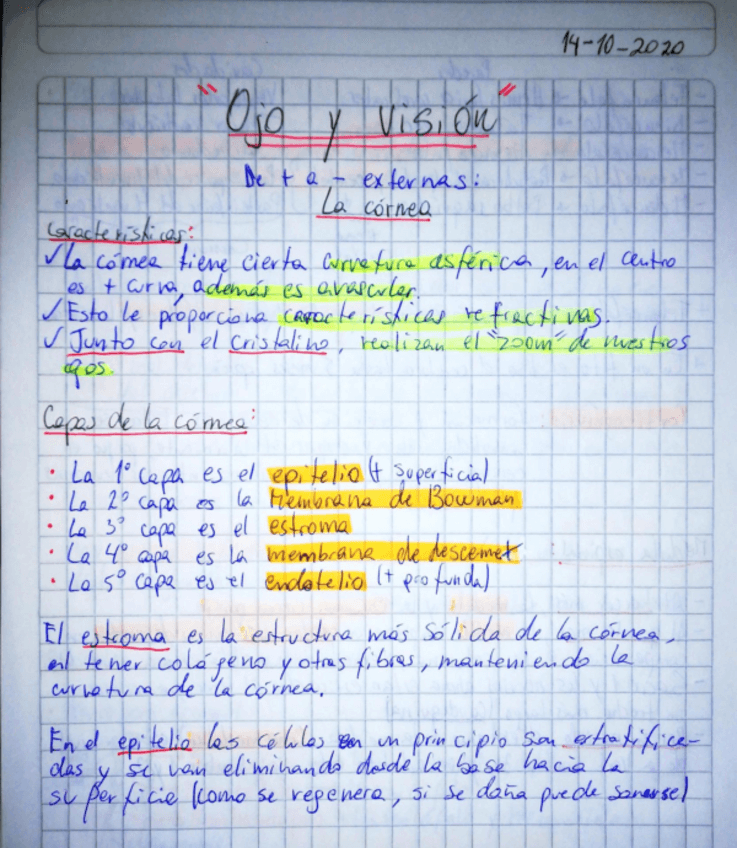 14-10-2020
"Ojo y visión"
De + a - externas:
La córnea
Características:
✓ La córnea tiene cierta curvatura asférica, en el centro
es + curva, además es avascular.
✓ Esto le proporciona características refractivas.
✓ Junto con el cristalino, realizan el "zoom" de nuestros
ojos.
Capas de la córnea:
• La 1º capa es el epitelio (+ superficial)
• La 2º capa es la Membrana de Bowman
• La 3º capa es el estroma
• La 4º capa es la membrana de descemet
• La 5º capa es el endotelio (+ profunda)
El estroma es la estructura más sólida de la córnea,
al tener colágeno y otras fibras, manteniendo la
curvatura de la córnea.
En el epitelio las células en un principio son estratifica-
das y se van eliminando desde la base hacia la
superficie (como se regenera, si se daña puede sanarse)